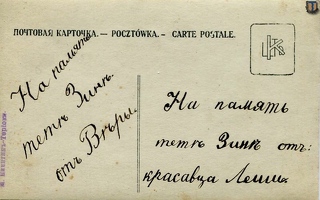 ПОЧТОВАЯ КАРТОЧКА. — POCZTÓWKA. — CARTE POSTALE.
На память
тетѣ Зинѣ.
отъ Вѣры.
На память
тетѣ Зинѣ отъ:
красавца Леши.